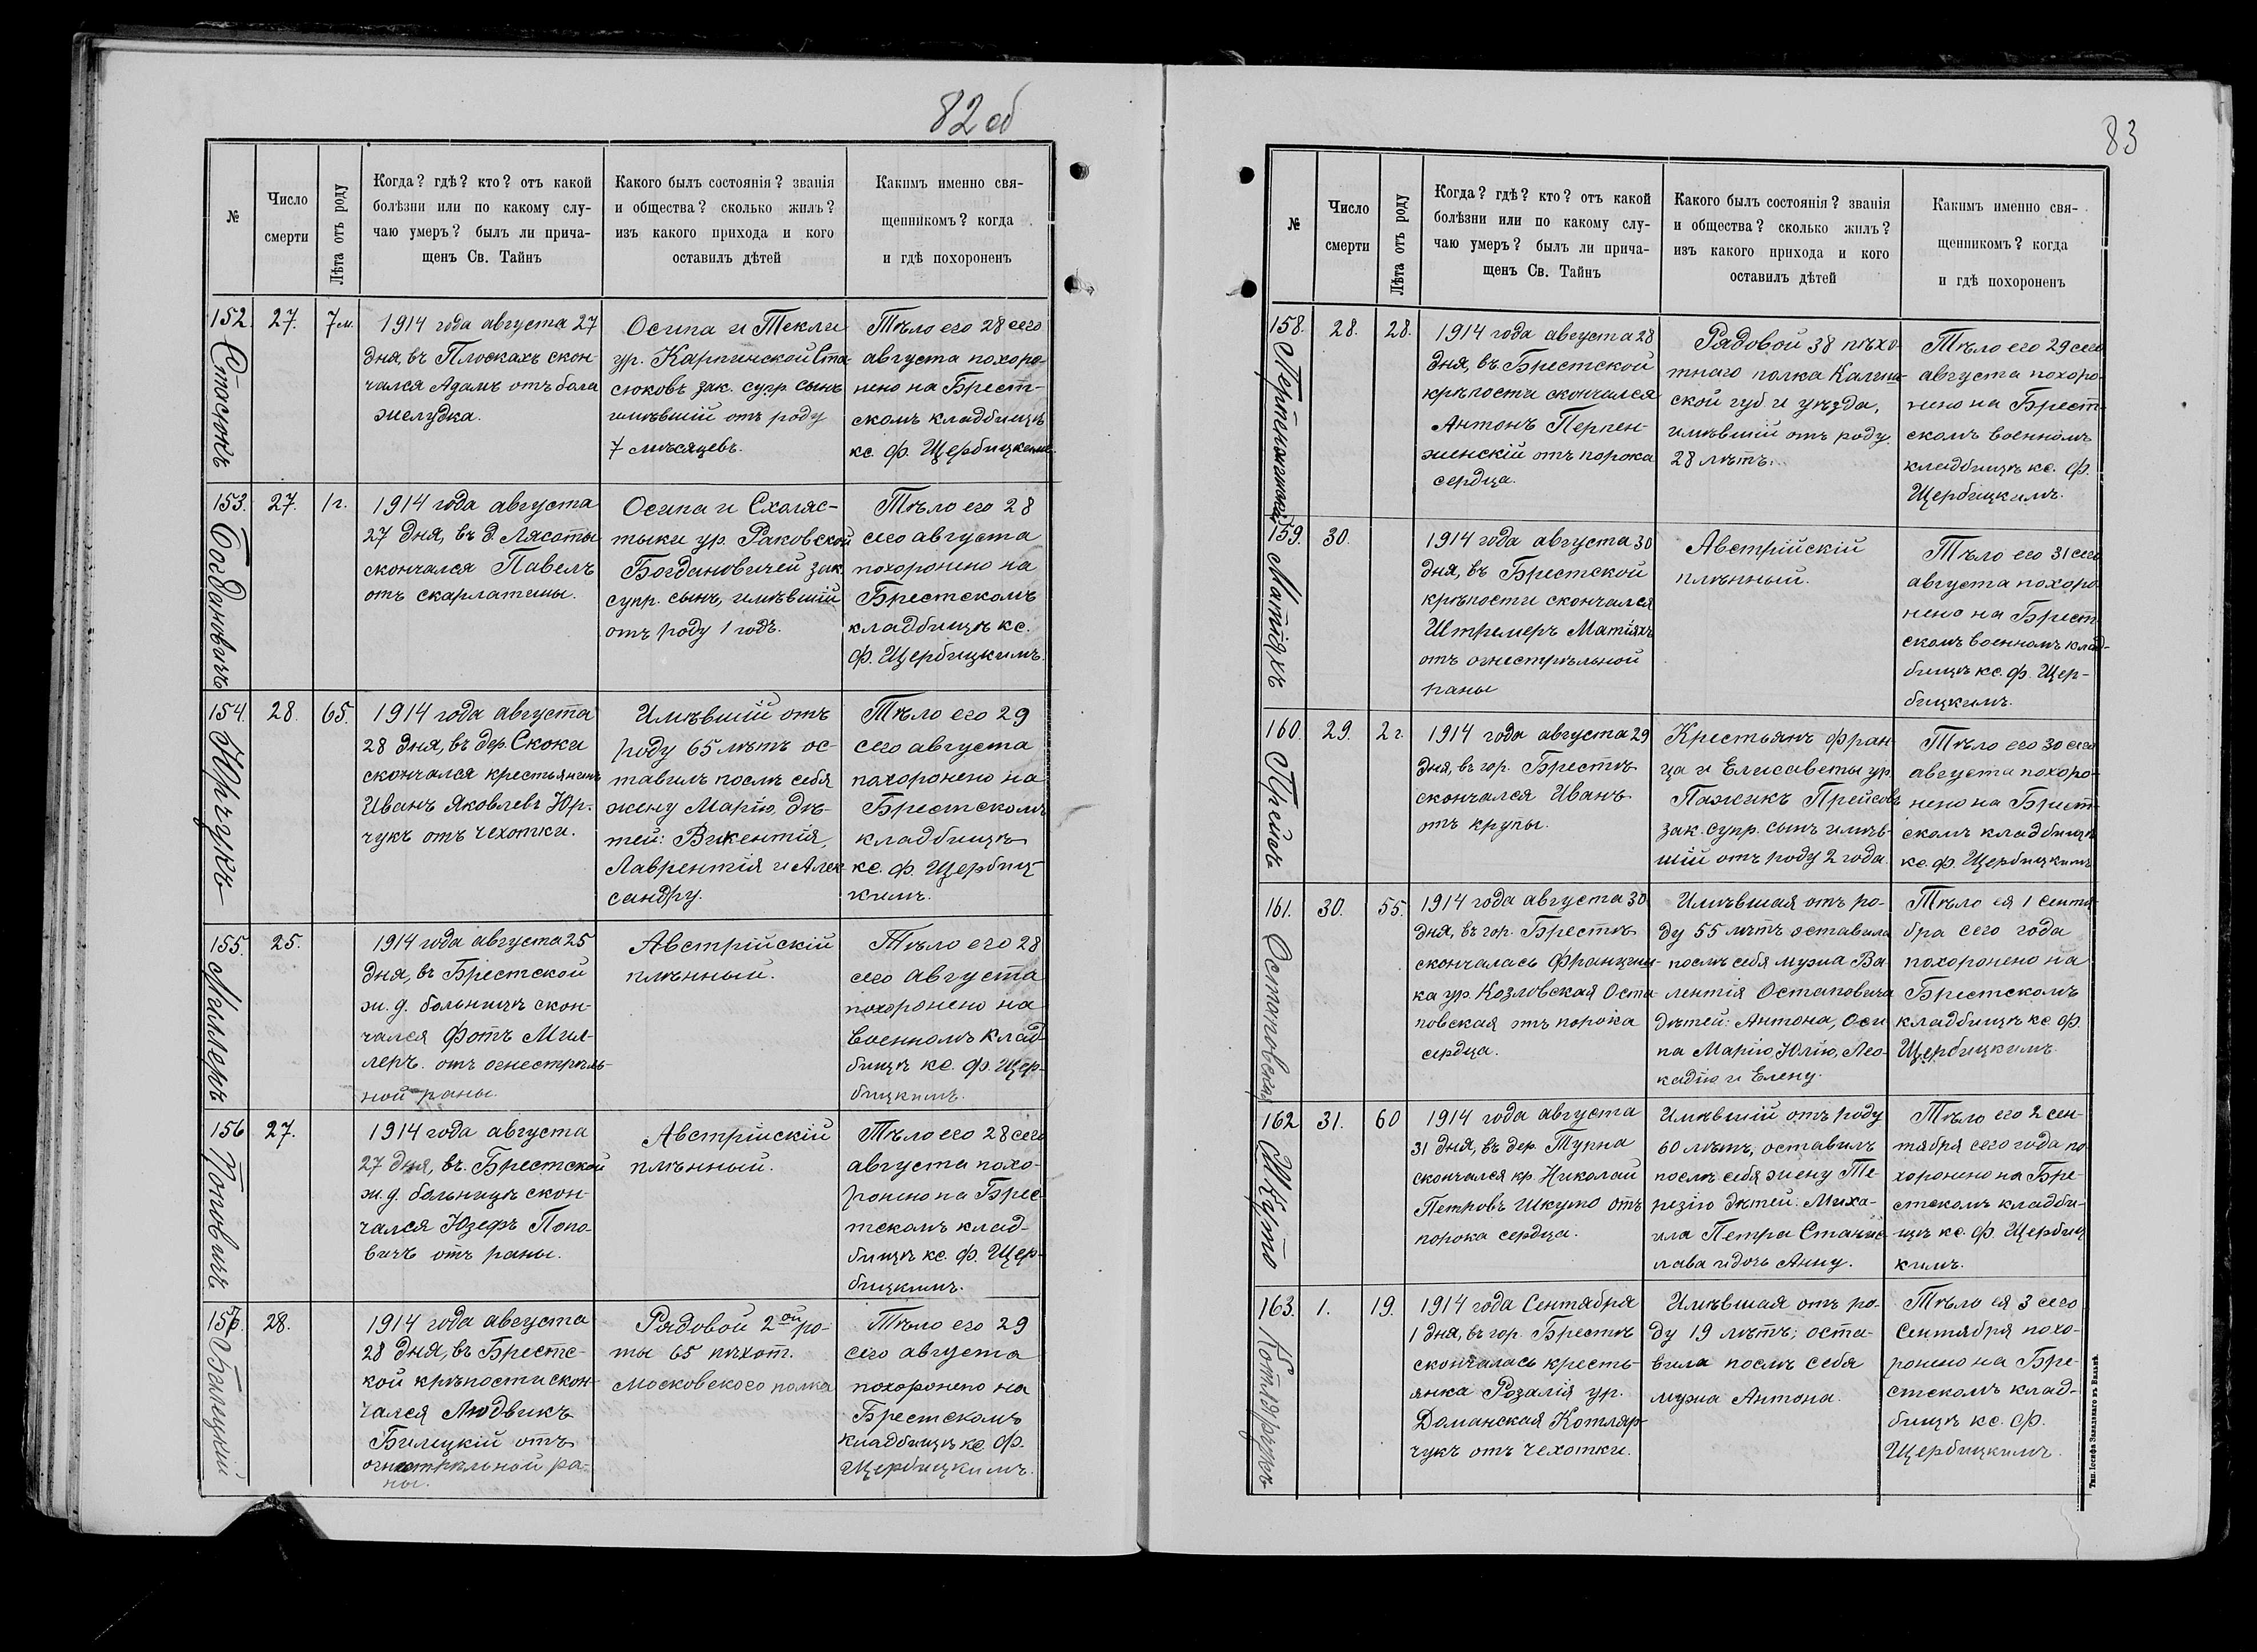 82 об
№
Число
смерти
Лѣта отъ роду
Когда? гдѣ? кто? отъ какой
болѣзни или по какому слу-
чаю умеръ? былъ ли прича-
щенъ Св. Тайнъ
Какого былъ состоянія? званія
и общества? сколько жилъ?
изъ какого прихода и кого
оставилъ дѣтей
Какимъ именно свя-
щенникомъ? когда
и гдѣ похороненъ
152.
Стасюкъ
27.
7 м.
1914 года августа 27
дня, въ Плоскахъ скон
чался Адамъ отъ бола
желудка.
Осипа и Текли
ур. Карпинской Ста
сюковъ зак. супр. сынъ
имѣвшій отъ роду
7 мѣсяцевъ.
Тѣло его 28 сего
августа похоро-
нено на Брест-
скомъ кладбищѣ
кс. ф. Щербицкимъ.
153.
Богдановичъ
27.
1 г.
1914 года августа
27 дня, въ д. Лясоты
скончался Павелъ
отъ скарлатины.
Осипа и Схоляс-
тыки ур. Раковской
Богдановичей зак.
супр. сынъ, имѣвшій
отъ роду 1 годъ.
Тѣло его 28
сего августа
похоронено на
Брестскомъ
кладбищѣ кс.
ф. Щербицкимъ.
154.
Юрчукъ
28.
65.
1914 года августа
28 дня, въ дер. Скоки
скончался крестьянинъ
Иванъ Яковлевъ Юр-
чукъ отъ чехотки.
Имѣвшій отъ
роду 65 лѣтъ ос-
тавилъ послѣ себя
жену Марію, дѣ-
тей: Викентія,
Лаврентія и Алек
сандру.
Тѣло его 29
сего августа
похоронено на
Брестскомъ
кладбищѣ
кс. ф. Щербиц-
кимъ.
155.
Миллеръ
25.
1914 года августа 25
дня, въ Брестской
ж. д. больницѣ скон-
чался Фотъ Мил-
леръ. отъ огнестрѣль-
ной раны.
Австрійскій
плѣнный.
Тѣло его 28
сего августа
похоронено на
военномъ клад-
бищѣ кс. ф. Щер-
бицкимъ.
156
Поповичъ
27.
1914 года августа
27 дня, въ Брестской
ж. д. больницѣ скон-
чался Юзефъ Попо-
вичъ отъ раны.
Австрійскій
плѣнный.
Тѣло его 28 сего
августа похо-
ронено на Брес-
тскомъ клад-
бищѣ кс. ф. Щер-
бицкимъ.
157.
Билецкій
28.
1914 года августа
28 дня, въ Брестс-
кой крѣпости скон-
чался Людвикъ
Билецкій отъ
огнестрѣльной ра-
ны.
Рядовой 2ой ро-
ты 65 пѣхот.
Московского полка
Тѣло его 29
сего августа
похоронено на
Брестскомъ
кладбищѣ кс. ф.
Щербицкимъ.
83
№
Число
смерти
Лѣта отъ роду
Когда? гдѣ? кто? отъ какой
болѣзни или по какому слу-
чаю умеръ? былъ ли прича-
щенъ Св. Тайнъ
Какого былъ состоянія? званія
и общества? сколько жилъ?
изъ какого прихода и кого
оставилъ дѣтей
Какимъ именно свя-
щенникомъ? когда
и гдѣ похороненъ
158.
28.
28.
1914 года августа 28
дня, въ Брестской
крѣпости скончался
Антонъ Перпен-
женскій отъ порока
сердца.
Рядовой 38 пѣхо-
тнаго полка Калиш-
ской губ. и уѣзда,
имѣвшій отъ роду
28 лѣтъ.
Тѣло его 29 сего
августа похоро-
нено на Брест-
скомъ военномъ
кладбищѣ кс. ф.
Щербицкимъ.
159.
Матіяхъ
30.
1914 года августа 30
дня, въ Брестской
крѣпости скончался
Штремеръ Матіяхъ
отъ огнестрѣльной
раны
Австрійскій
плѣнный.
Тѣло его 31 сего
августа похоро-
нено на Брест-
скомъ военномъ клад-
бищѣ кс. ф. Щер-
бицкимъ.
160.
Прейсъ
29.
2 г.
1914 года августа 29
дня, въ гор. Брестѣ
скончался Иванъ
отъ крупы.
Крестьянъ Фран-
ца и Елисаветы ур.
Пажикъ Прейсовъ
зак. супр. сынъ имѣв-
шій отъ роду 2 года.
Тѣло его 30 сего
августа похоро-
нено на Брест-
скомъ кладбищѣ
кс. ф. Щербицкимъ
161.
Остаповская
30.
55.
1914 года августа 30
дня, въ гор. Брестѣ
скончалась Франциш-
ка ур. Козловская Оста-
повская отъ порока
сердца.
Имѣвшая отъ ро-
ду 55 лѣтъ оставила
послѣ себя мужа Ва-
лентія Остаповича
дѣтей: Антона, Оси
па Марію, Юлію, Лео-
кадію и Елену.
Тѣло ея 1 сентя-
бра сего года
похоронено на
Брестскомъ
кладбищѣ кс. ф.
Щербицкимъ.
162
Шкуто
31.
60
1914 года августа
31 дня, въ дер. Турна
скончался кр. Николай
Петровъ Шкуто отъ
порока сердца.
Имѣвшій отъ роду
60 лѣтъ, оставилъ
послѣ себя жену Те-
резію дѣтей: Миха-
ила Петра Станис-
лава и дочь Анну.
Тѣло его 2 сен-
тября сего года по
хоронено на Бре-
стскомъ кладби-
щѣ кс. ф. Щербиц
кимъ.
163.
Котлярчукъ
1.
19.
1914 года Сентября
1 дня, въ гор. Брестѣ
скончалась кресть-
янка Розалія ур.
Доманская Котляр-
чукъ отъ чехотки.
Имѣвшая отъ ро-
ду 19 лѣтъ; оста-
вила послѣ себя
мужа Антона.
Тѣло ея 3 сего
Сентября похо-
ронено на Бре-
стскомъ клад-
бищѣ кс. ф.
Щербицкимъ.
Тип. Іосифа Завадзкаго въ Вильнѣ.